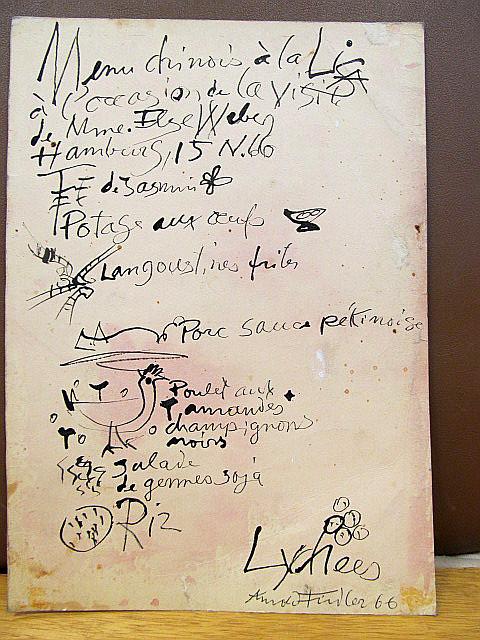 Menu chinois à la Lis
à l'occasion de la visite
de Mme. Else Weber
Hamburg, 15 N. 66
TEE de Jasmin
Potage aux œufs
Langoustines frites
Porc sauce pékinoise
Poulet aux
amandes
champignons
noirs
salade
de germes soja
Riz
Lychees
66